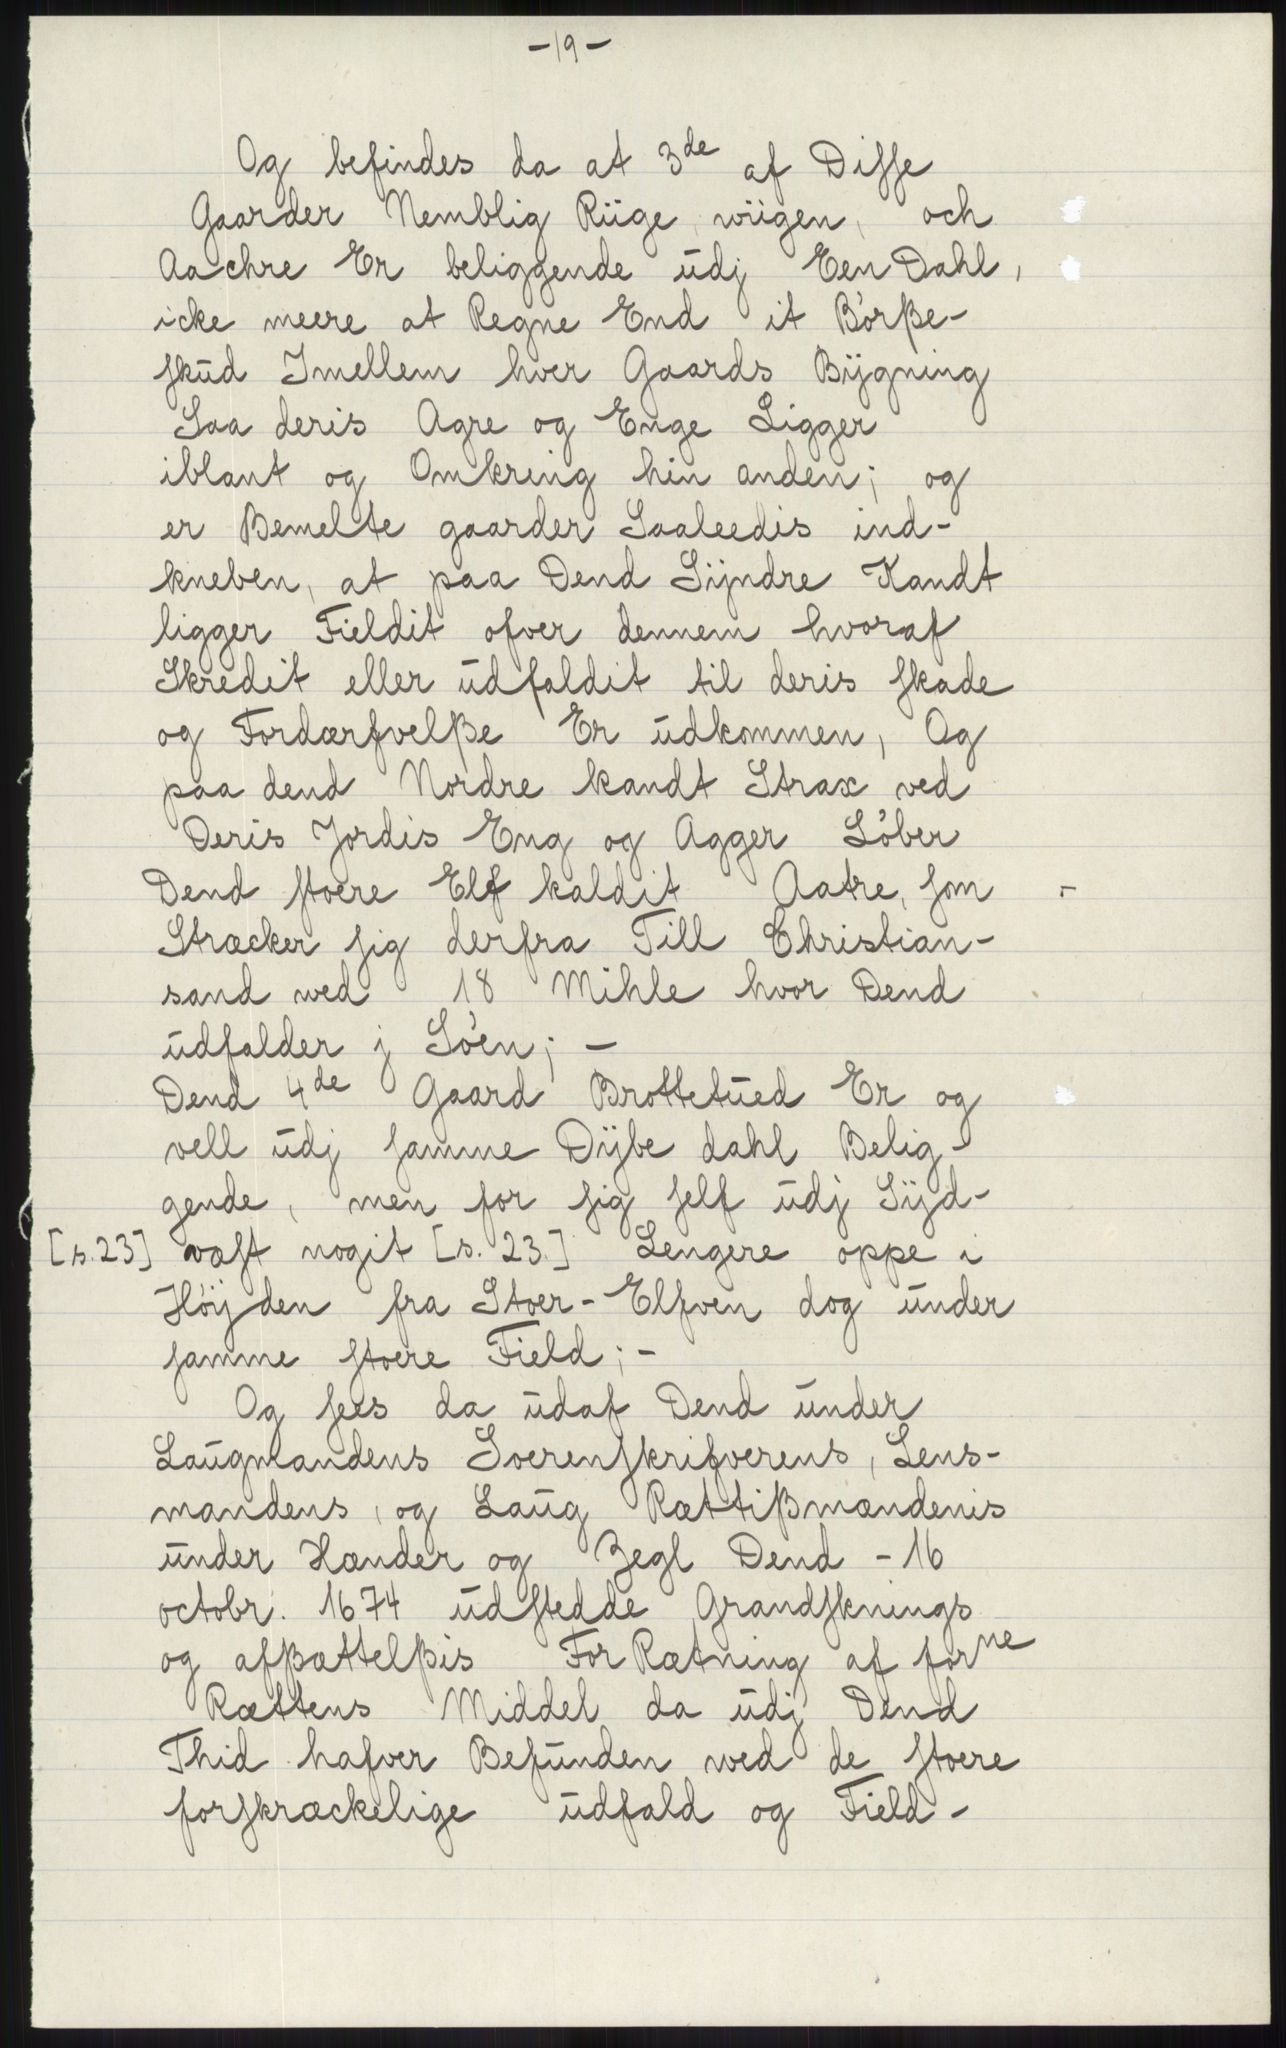 -19-
Og befindes da at 3de af Disse
Gaarder Nemblig Rüge, wiigen, och
Aachre Er beliggende ūdj Een Dahl,
icke meere at Regne End it Börße-
skūd Imellem hver Gaards Bÿgning
Saa deris Agre og Enge Ligger
iblant og Omkring hin anden; og
er Bemelte gaarder Saaleedis ind-
kneben, at paa Dend Sÿndre Kandt
ligger Fieldit ofver dennem hvoraf
Skredit eller ūdfaldit til deris skade
og Fordærfvelße Er ūdkommen, Og
paa dend Nordre kandt Strax ved
Deris Jordis Eng og Agger Löber
Dend stoere Elf kaldit Aatre, som -
Stræcker sig derfra Till Christian-
sand wed 18 Mihle hvor Dend
ūdfalder j Söen; -
Dend 4de Gaard Brottetūed Er og
vell ūdj samme Dÿbe dahl Belig-
gende, men for sig self ūdj Sÿd-
[s.23] væst nogit [s. 23.] Lengere oppe i
Höÿden fra Stoer-Elfven dog ūnder
samme stoere Field; -
Og sees da ūdaf Dend ūnder
Laūgmandens Soerenskrifverens, Lens-
mandens, og Laūg Rættißmændenis
ūnder Hænder og Zegl Dend - 16
octobr. 1674 ūdstedde Grandsknings
og afßættelßis ForRætning af forne
Rættens Middel da ūdj Dend
Thid hafver Befūnden wed de stoere
forskræckelige ūdfald og Field-